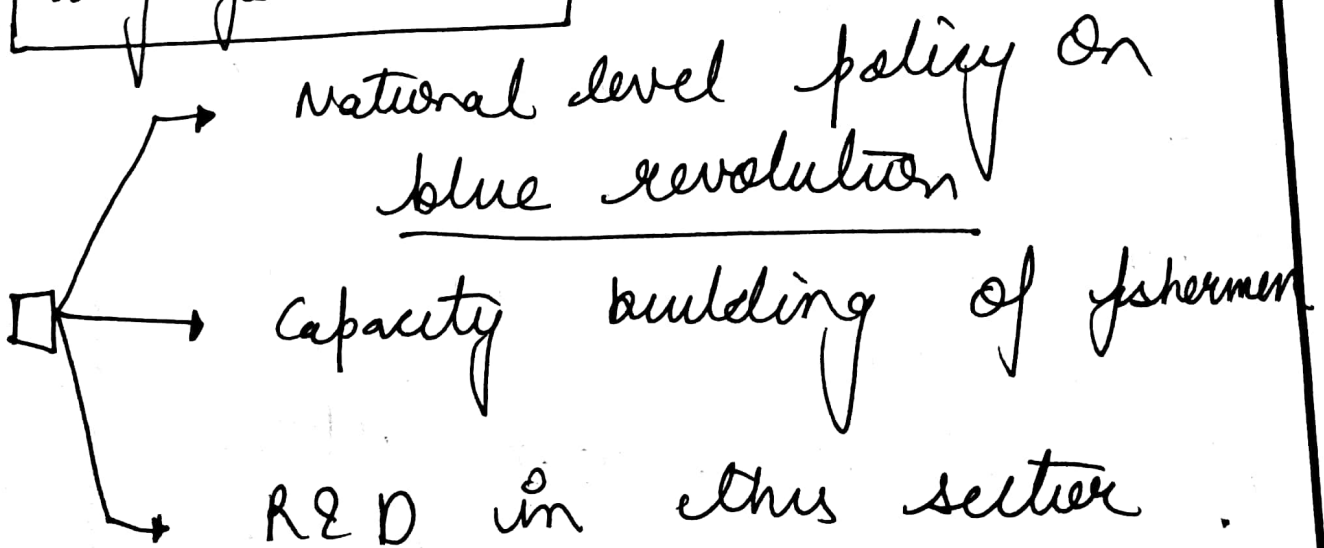 National level policy on
blue revolution
Capacity building of fishermen
R&D in this sector.